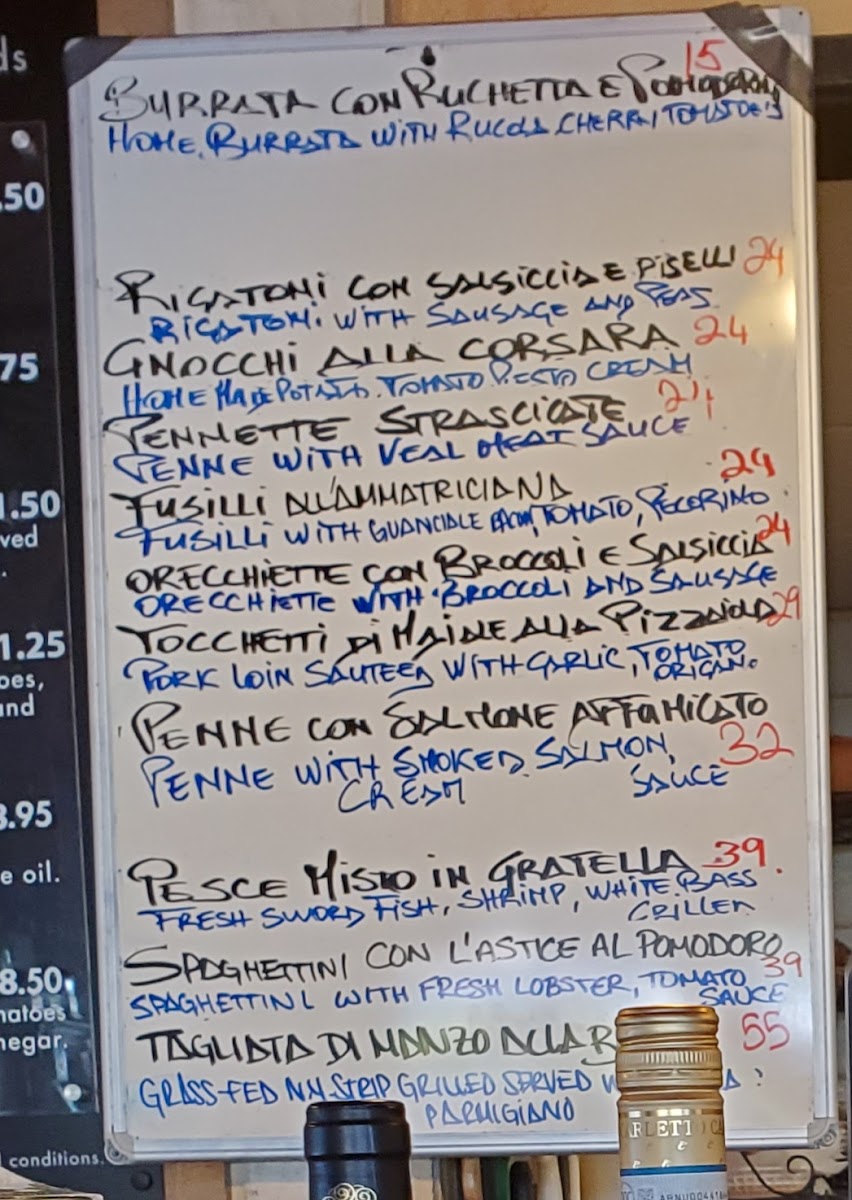 ds
.50
75
1.50
ved
.
1.25
oes,
and
3.95
e oil.
8.50
matoes
negar.
conditions.
15
BURRATA CON RUCHETTA E POMODORINI
HOME BURRATA WITH RUCOLA CHERRY TOMATOE'S
RIGATONI CON SALSICCIA E PISELLI 24
RIGATONI WITH SAUSAGE AND PEAS
GNOCCHI ALLA CORSARA 24
HOME MADE POTATO. TOMATO PESTO CREAM
PENNETTE STRASCICATE 24
PENNE WITH VEAL MEAT SAUCE
FUSILLI ALL'AMMATRICIANA 24
FUSILLI WITH GUANCIALE BACON, TOMATO, PECORINO
ORECCHIETTE CON BROCCOLI E SALSICCIA 24
ORECCHIETTE WITH BROCCOLI AND SAUSAGE
TOCCHETTI DI MAIALE ALLA PIZZAIOLA 29
PORK LOIN SAUTEED WITH GARLIC, TOMATO
ORIGANO
PENNE CON SALMONE AFFUMICATO
PENNE WITH SMOKED SALMON, 32
CREAM SAUCE
PESCE MISTO IN GRATELLA 39.
FRESH SWORD FISH, SHRIMP, WHITE BASS
GRILLED
SPAGHETTINI CON L'ASTICE AL POMODORO
SPAGHETTINI WITH FRESH LOBSTER, TOMATO 39
SAUCE
TAGLIATA DI MANZO ALLA 55
GRASS-FED NY STRIP GRILLED SERVED
PARMIGIANO
ARLETTI CA